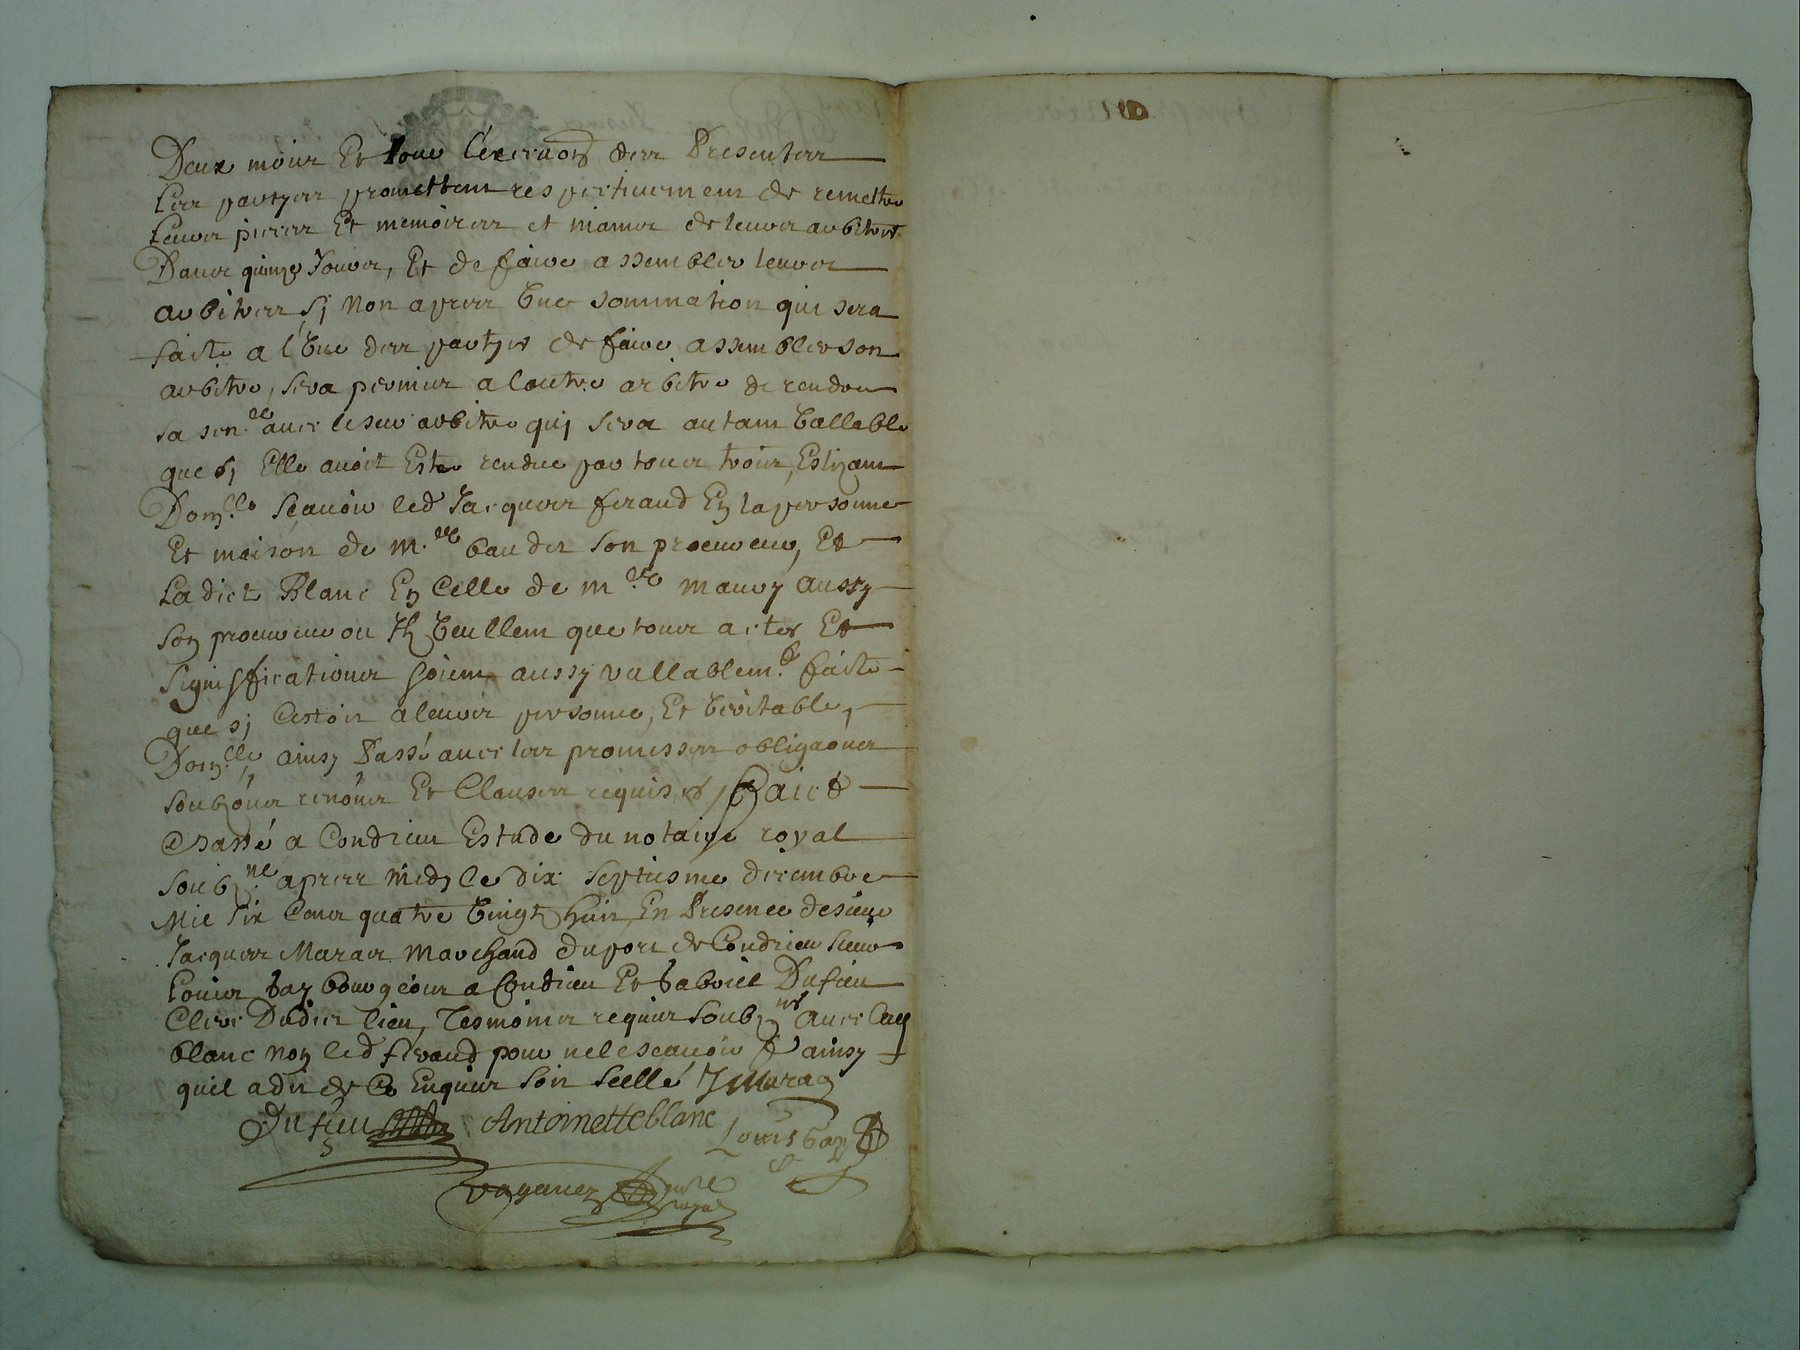 Deux mois Et pour l'exécuõn des Presentes
les partyes promettent respectivement de remettre
leurs pieces Et memoires et mains de leurs arbitres
Dans quinze Jours, Et de faire assembler leurs
arbitres sj non apres Une sommation qui sera
faite a l'Une des partyes de faire assembler son
arbitre, sera permis a lautre arbitre de rendre
sa sen.ce avec le seur arbitre quj sera autant Vallable
que sj Elle avoit Este rendue par tous trois, Eslizant
Dom.lle Scavoir led Jacques feraud En la personne
Et maison de m.re baudes son procureur, Et
Ladict Blanc En Celle de m.re maury aussy
son procureur ou Ilz Veullent que tous actes Et
significations soient aussy vallablem.t faite
que sj Cestoit a leurs personne, Et Veritable,
Dom.lle ainsy Passé avec les promesses obligaõns
soubzõns renõns Et Clauses requises, Faict &
passé a Condrieu Estude du notaire royal
soubz.né apres midy le dix septiesme decembre
Mil six Cens quatre Vingt huit, En Presence de sieur
Jacques Maras marchand du port de Condrieu sieur
Louis bay bourgeois a Condrieu Et Gabriel Dufieu
Clerc Dudict lieu, Tesmoins requis soubz.nés avec lad
blanc non led feraud pour ne le scavoir ainsy
quil a dit de Ce Enquis soit scellé JMaras
Dufieu Antoinette blanc Louis bay
vaganez no.re royal